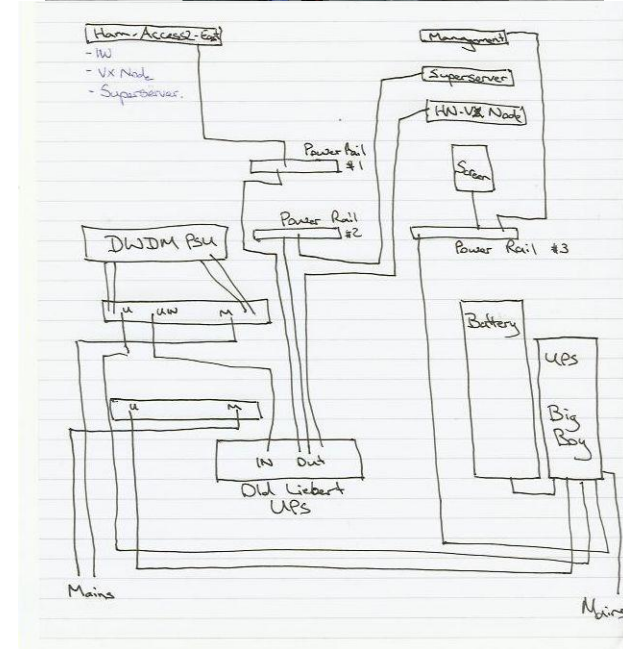 Ham-Access2-East
- IW
- VX Node
- Superserver.
Management
Superserver
HN-VX Node
Power Rail
#1
Screen
Power Rail
#2
DWDM PSU
Power Rail #3
U UW M
Battery
UPS
Big
Boy
U M
IN Out
Old Liebert
UPS
Mains
Mains